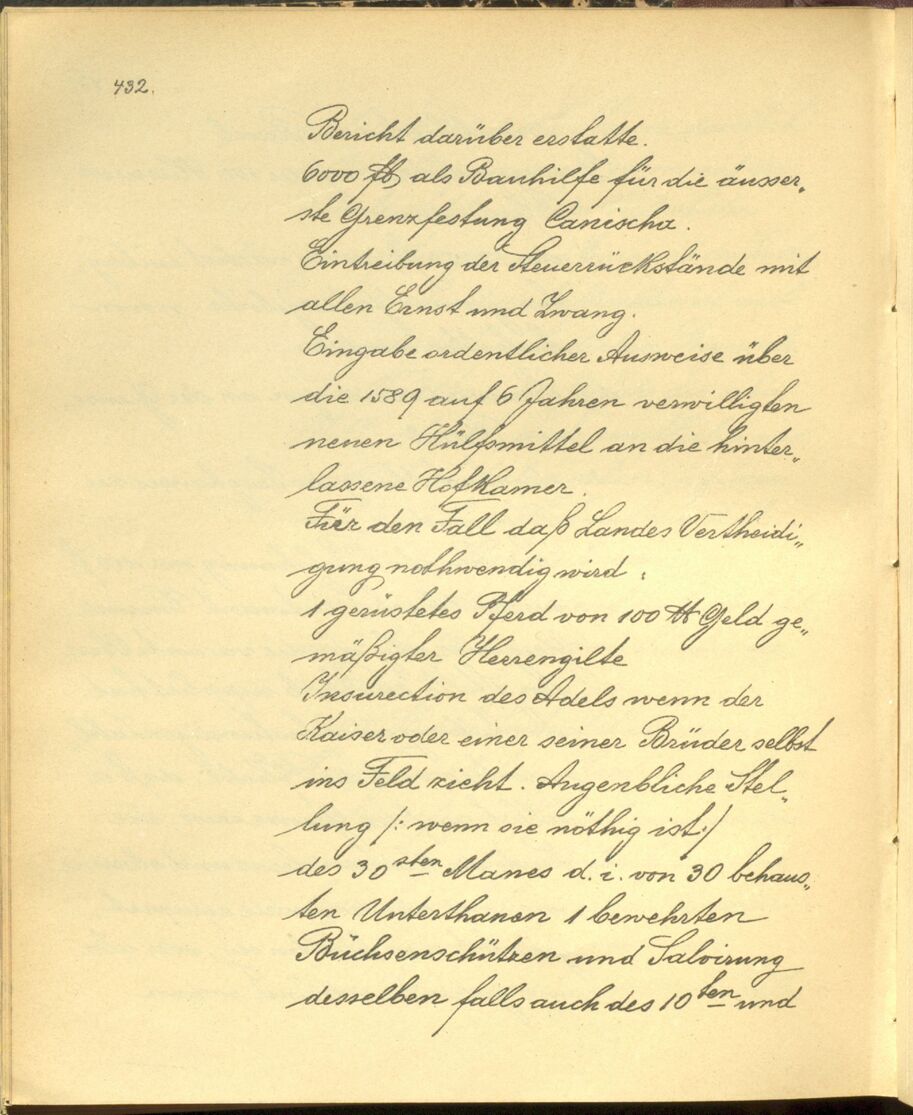 432.
Bericht darüber erstatte.
6000 fl als Bauhilfe für die äusser„
ste Grenzfestung Canischa.
Eintreibung der Steuerrückstände mit
allen Ernst und Zwang.
Eingabe ordentlicher Ausweise über
die 1589 auf 6 Jahren verwilligten
neuen Hülfsmittel an die hinter„
lassene Hofkamer.
Für den Fall daß Landes Vertheidi„
gung nothwendig wird:
1 gerüstetes Pferd von 100 ℔ Geld ge„
mäßigter Herrengilte
Insurection des Adels wenn der
Kaiser oder einer seiner Brüder selbst
ins Feld zieht. Augenbliche Stel„
lung /: wenn sie nöthig ist :/
des 30sten Manes d. i. von 30 behaus„
ten Unterthanen 1 bewehrten
Büchsenschützen und Salvirung
desselben falls auch des 10ten und